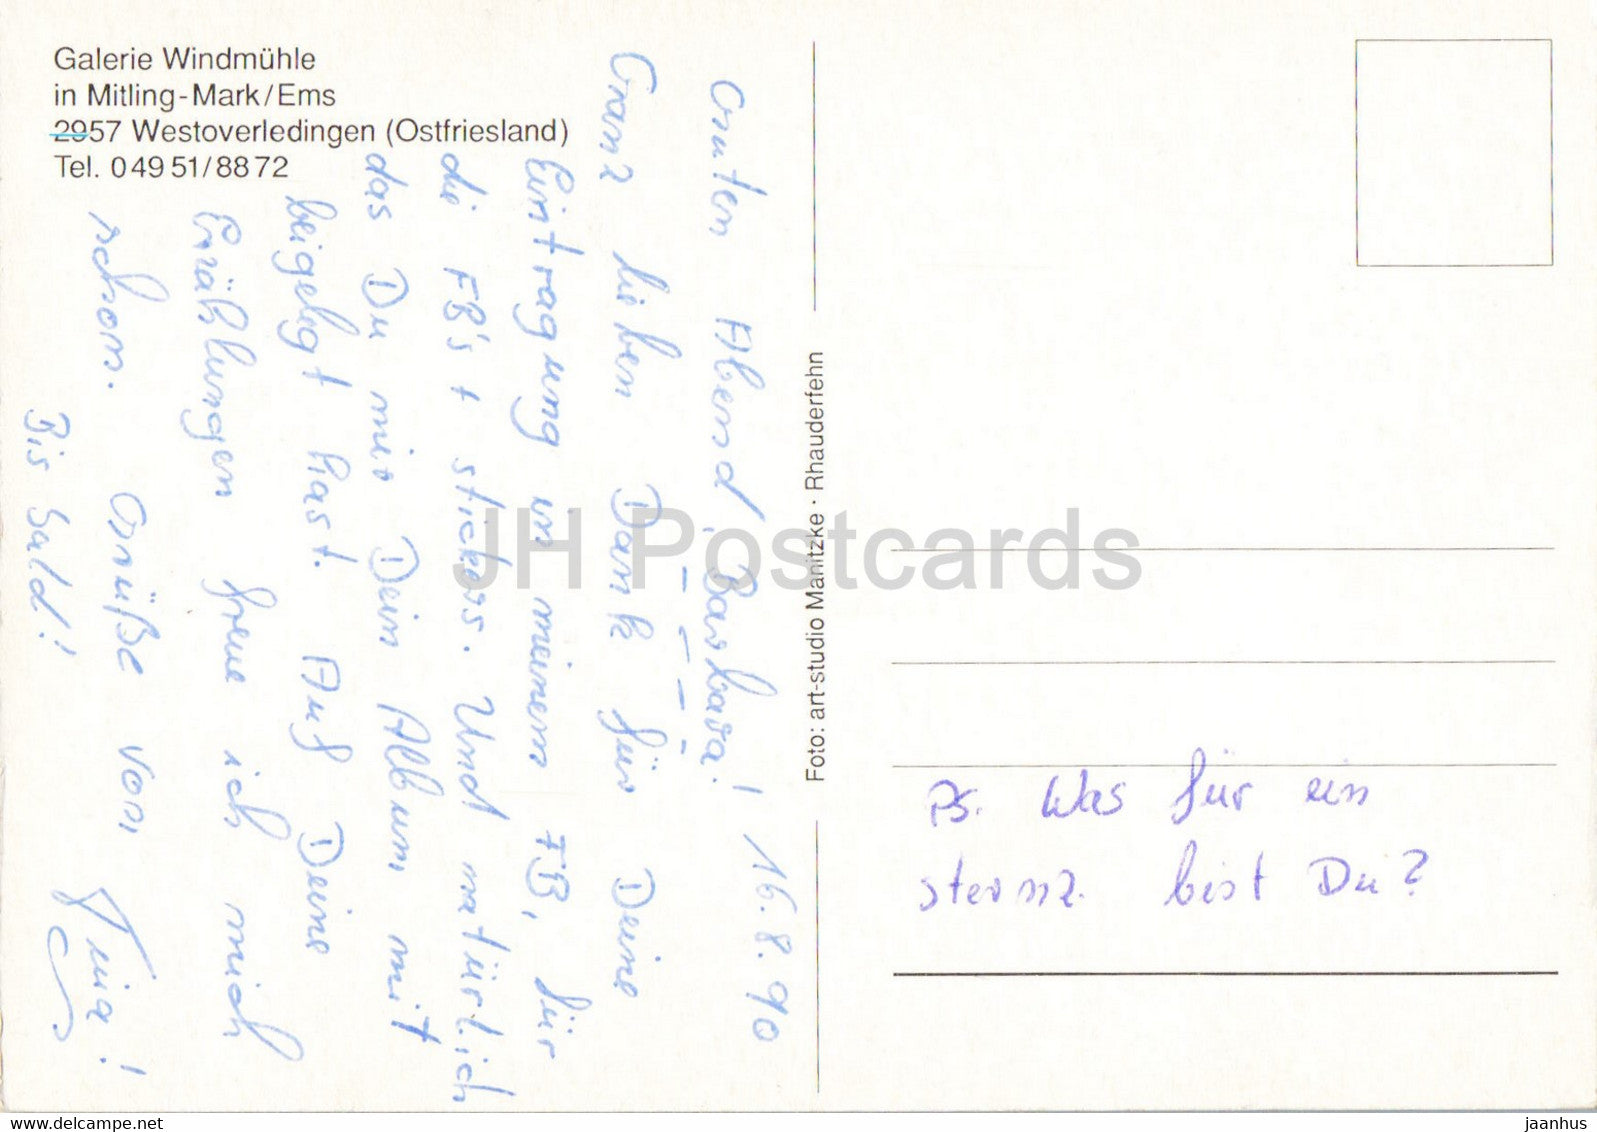 Galerie Windmühle
in Mitling-Mark/Ems
2957 Westoverledingen (Ostfriesland)
Tel. 0 49 51/88 72
Guten Abend, Barbara! 16.8.90
Ganz lieben Dank für Deine
Eintragung in meinem FB, für
die FB's + stickers. Und natürlich
das Du mir Dein Album mit
beigelegt hast. Auf Deine
Erzählungen freue ich mich
schon. Grüße von
Bis bald!
Foto: art-studio Manitzke · Rhauderfehn
PS. Was für ein
sternz. bist Du?
JH Postcards
jaanhus